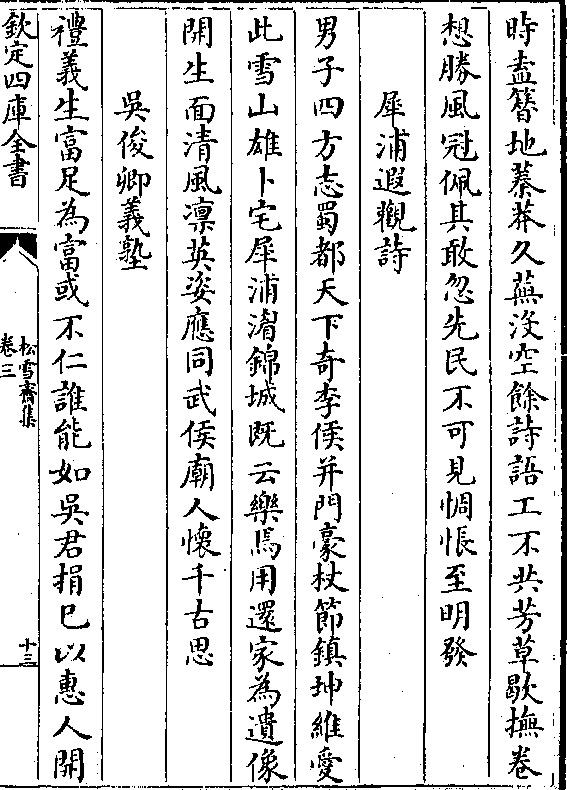 時盍簪地蓁莽久蕪沒空餘詩語工不共芳草歇撫卷
想勝風冠佩其敢忽先民不可見惆悵至明發
犀浦遐觀詩
男子四方志蜀都天下奇李侯并門豪杖節鎮坤維愛
此雪山雄卜宅犀浦湄錦城既云樂焉用還家為遺像
開生面清風凛英姿應同武侯廟人懷千古思
吳俊卿義塾
禮義生富足為富或不仁誰能如吳君捐已以惠人開
欽定四庫全書
松雪齋集
卷三
十三